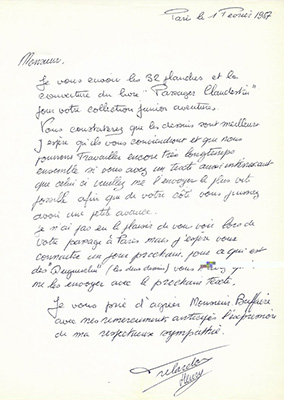 Paris le 1 Fevrier 1967
Monsieur.
Je vous envoie les 32 planches et la
couverture du livre "Passages Clandestins"
pour votre collection junior aventures.
Vous constaterez que les dessins sont meilleurs
J espère qu'ils vous conviendront et que nous
pourrons travailler encore très longtemps
ensemble si vous avez un texte aussi intéressant
que celui ci veuillez me l'envoyer le plus vite
possible afin que de votre côté vous puissiez
avoir une petite avance.
je n'ai pas eu le plaisir de vous voir lors de
votre passage à Paris mais j'espère vous
connaitre un jour prochain. pour ce qui est
des (les dessins) vous
me les envoyer avec le prochain texte.
Je vous prie d'agréer Monsieur
avec mes remerciements anticipés l'expression
de ma respectueuse sympathie.